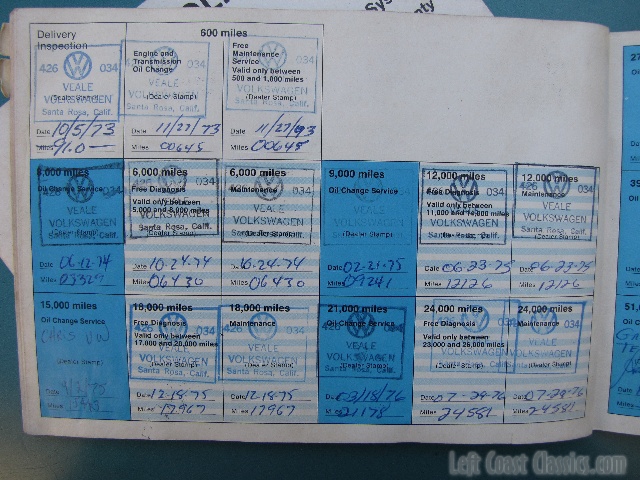 Sy
nty
Delivery
Inspection
426 034
VEALE
VOLKSWAGEN
(Dealer Stamp)
Santa Rosa, Calif.
Date 10/5/73
Miles
600 miles
Engine and
Transmission
Oil Change
034
VEALE
(Dealer Stamp)
VOLKSWAGEN
Santa Rosa, Calif.
Date 11/27/73
Miles 00645
Free
Maintenance
Service
Valid only between
500 and 1,000 miles
034
VEALE
(Dealer Stamp)
VOLKSWAGEN
Santa Rosa, Calif.
Date 11/27/73
Miles 00645
3,000 miles
Oil Change Service
034
VEALE
VOLKSWAGEN
(Dealer Stamp)
Santa Rosa, Calif.
Date 06-12-74
Miles
6,000 miles
Free Diagnosis
034
Valid only between
5,000 and 8,000 miles
VOLKSWAGEN
Santa Rosa, Calif.
(Dealer Stamp)
Date 10-24-74
Miles 06430
6,000 miles
Maintenance
034
VEALE
VOLKSWAGEN
Santa Rosa, Calif.
(Dealer Stamp)
Date 10-24-74
Miles 06430
9,000 miles
Oil Change Service
(Dealer Stamp)
Date 02-21-75
Miles 09241
12,000 miles
Free Diagnosis
034
Valid only between
11,000 and 14,000 miles
VOLKSWAGEN
Santa Rosa, Calif.
(Dealer Stamp)
Date 06-23-75
Miles 12126
12,000 miles
426 034
Maintenance
VEALE
VOLKSWAGEN
Santa Rosa, Calif.
(Dealer Stamp)
Date 06-23-75
Miles 12126
15,000 miles
Oil Change Service
VW
(Dealer Stamp)
Date
Miles
18,000 miles
426 034
Free Diagnosis
Valid only between
17,000 and 20,000 miles
VOLKSWAGEN
(Dealer Stamp)
Santa Rosa, Calif.
Date 12-18-75
Miles 17967
18,000 miles
Maintenance
034
VEALE
VOLKSWAGEN
(Dealer Stamp)
Santa Rosa, Calif.
Date 12-18-75
Miles 17967
21,000 miles
Oil Change Service
034
VEALE
VOLKSWAGEN
(Dealer Stamp)
Santa Rosa, Calif.
Date 03/18/76
Miles 21178
24,000 miles
Free Diagnosis
Valid only between
23,000 and 26,000 miles
(Dealer Stamp)
Date 07-29-76
Miles 24581
24,000 miles
Maintenance
(Dealer Stamp)
Date 07-29-76
Miles 24581
27
Oil
Oil
51,
Oil
Left Coast Classics.com